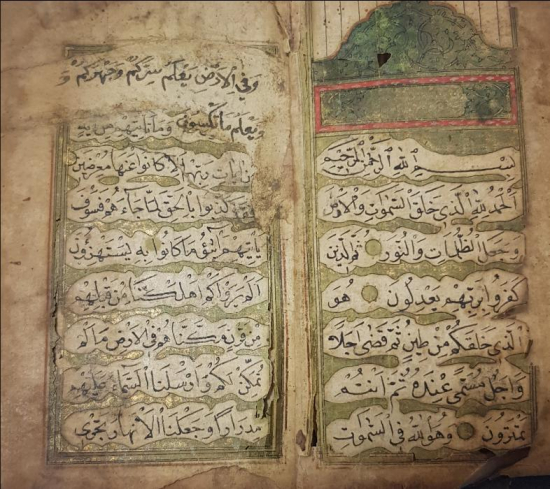 بسم الله الرحمن الرحيم
الحمد لله الذي خلق السموات والارض
وجعل الظلمات والنور ثم الذين
كفروا بربهم يعدلون هو
الذي خلقكم من طين ثم قضى اجلا
واجل مسمى عنده ثم انتم
تمترون وهو الله في السموات
وفي الارض يعلم سركم وجهركم و
ويعلم ما تكسبون وما تاتيهم من اية
من ايات ربهم الا كانوا عنها معرضين
فقد كذبوا بالحق لما جاءهم فسوف
ياتيهم انبؤا ما كانوا به يستهزؤن
الم يروا كم اهلكنا من قبلهم
من قرن مكناهم في الارض ما لم
نمكن لكم وارسلنا السماء عليهم
مدرارا وجعلنا الانهار تجري